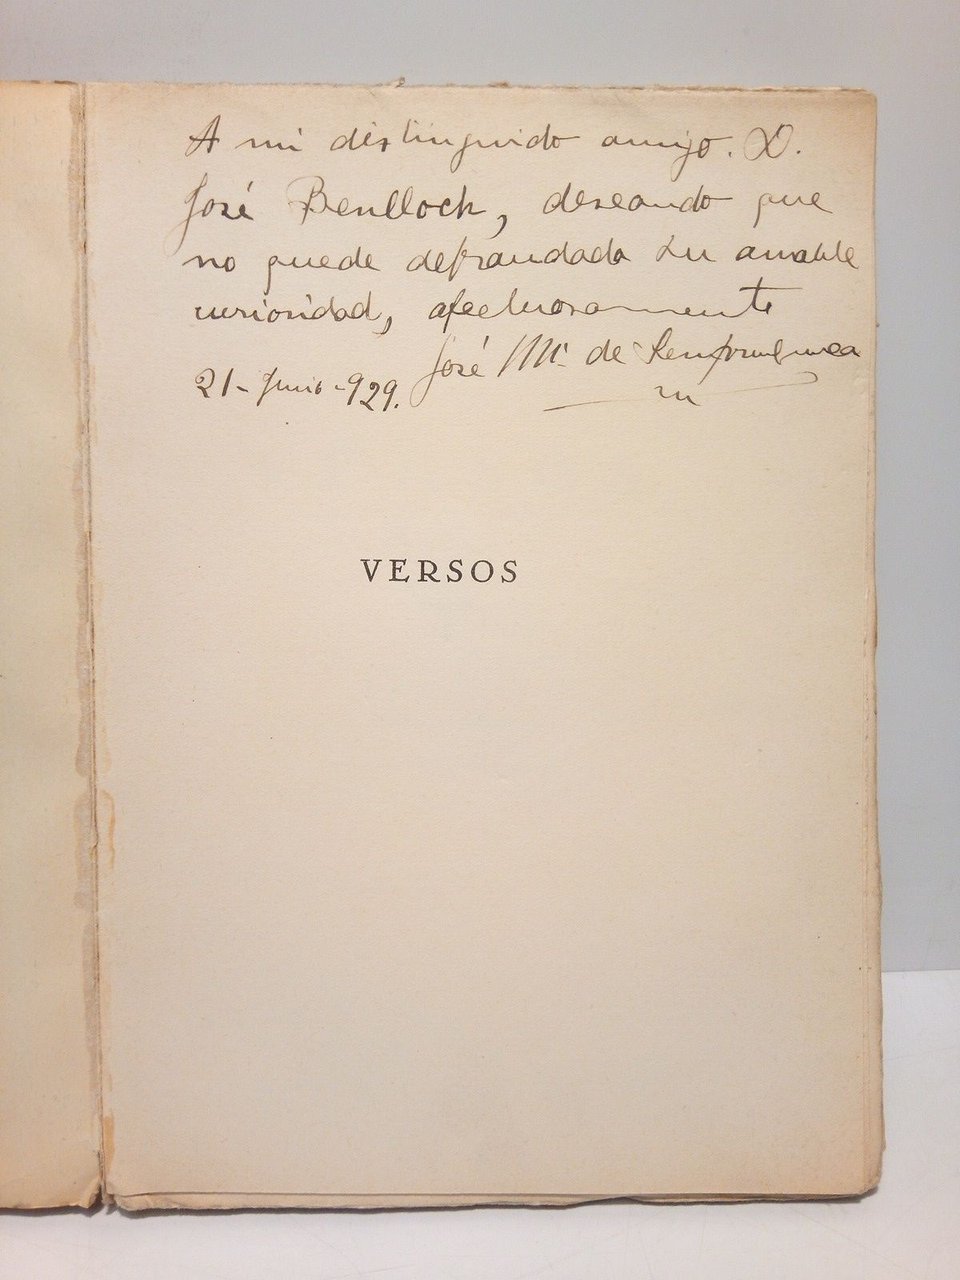 A mi distinguido amigo. D.
José Benlloch, deseando que
no quede defraudada su amable
curiosidad, afectuosamente
José Mª de
21-Junio-929.
VERSOS